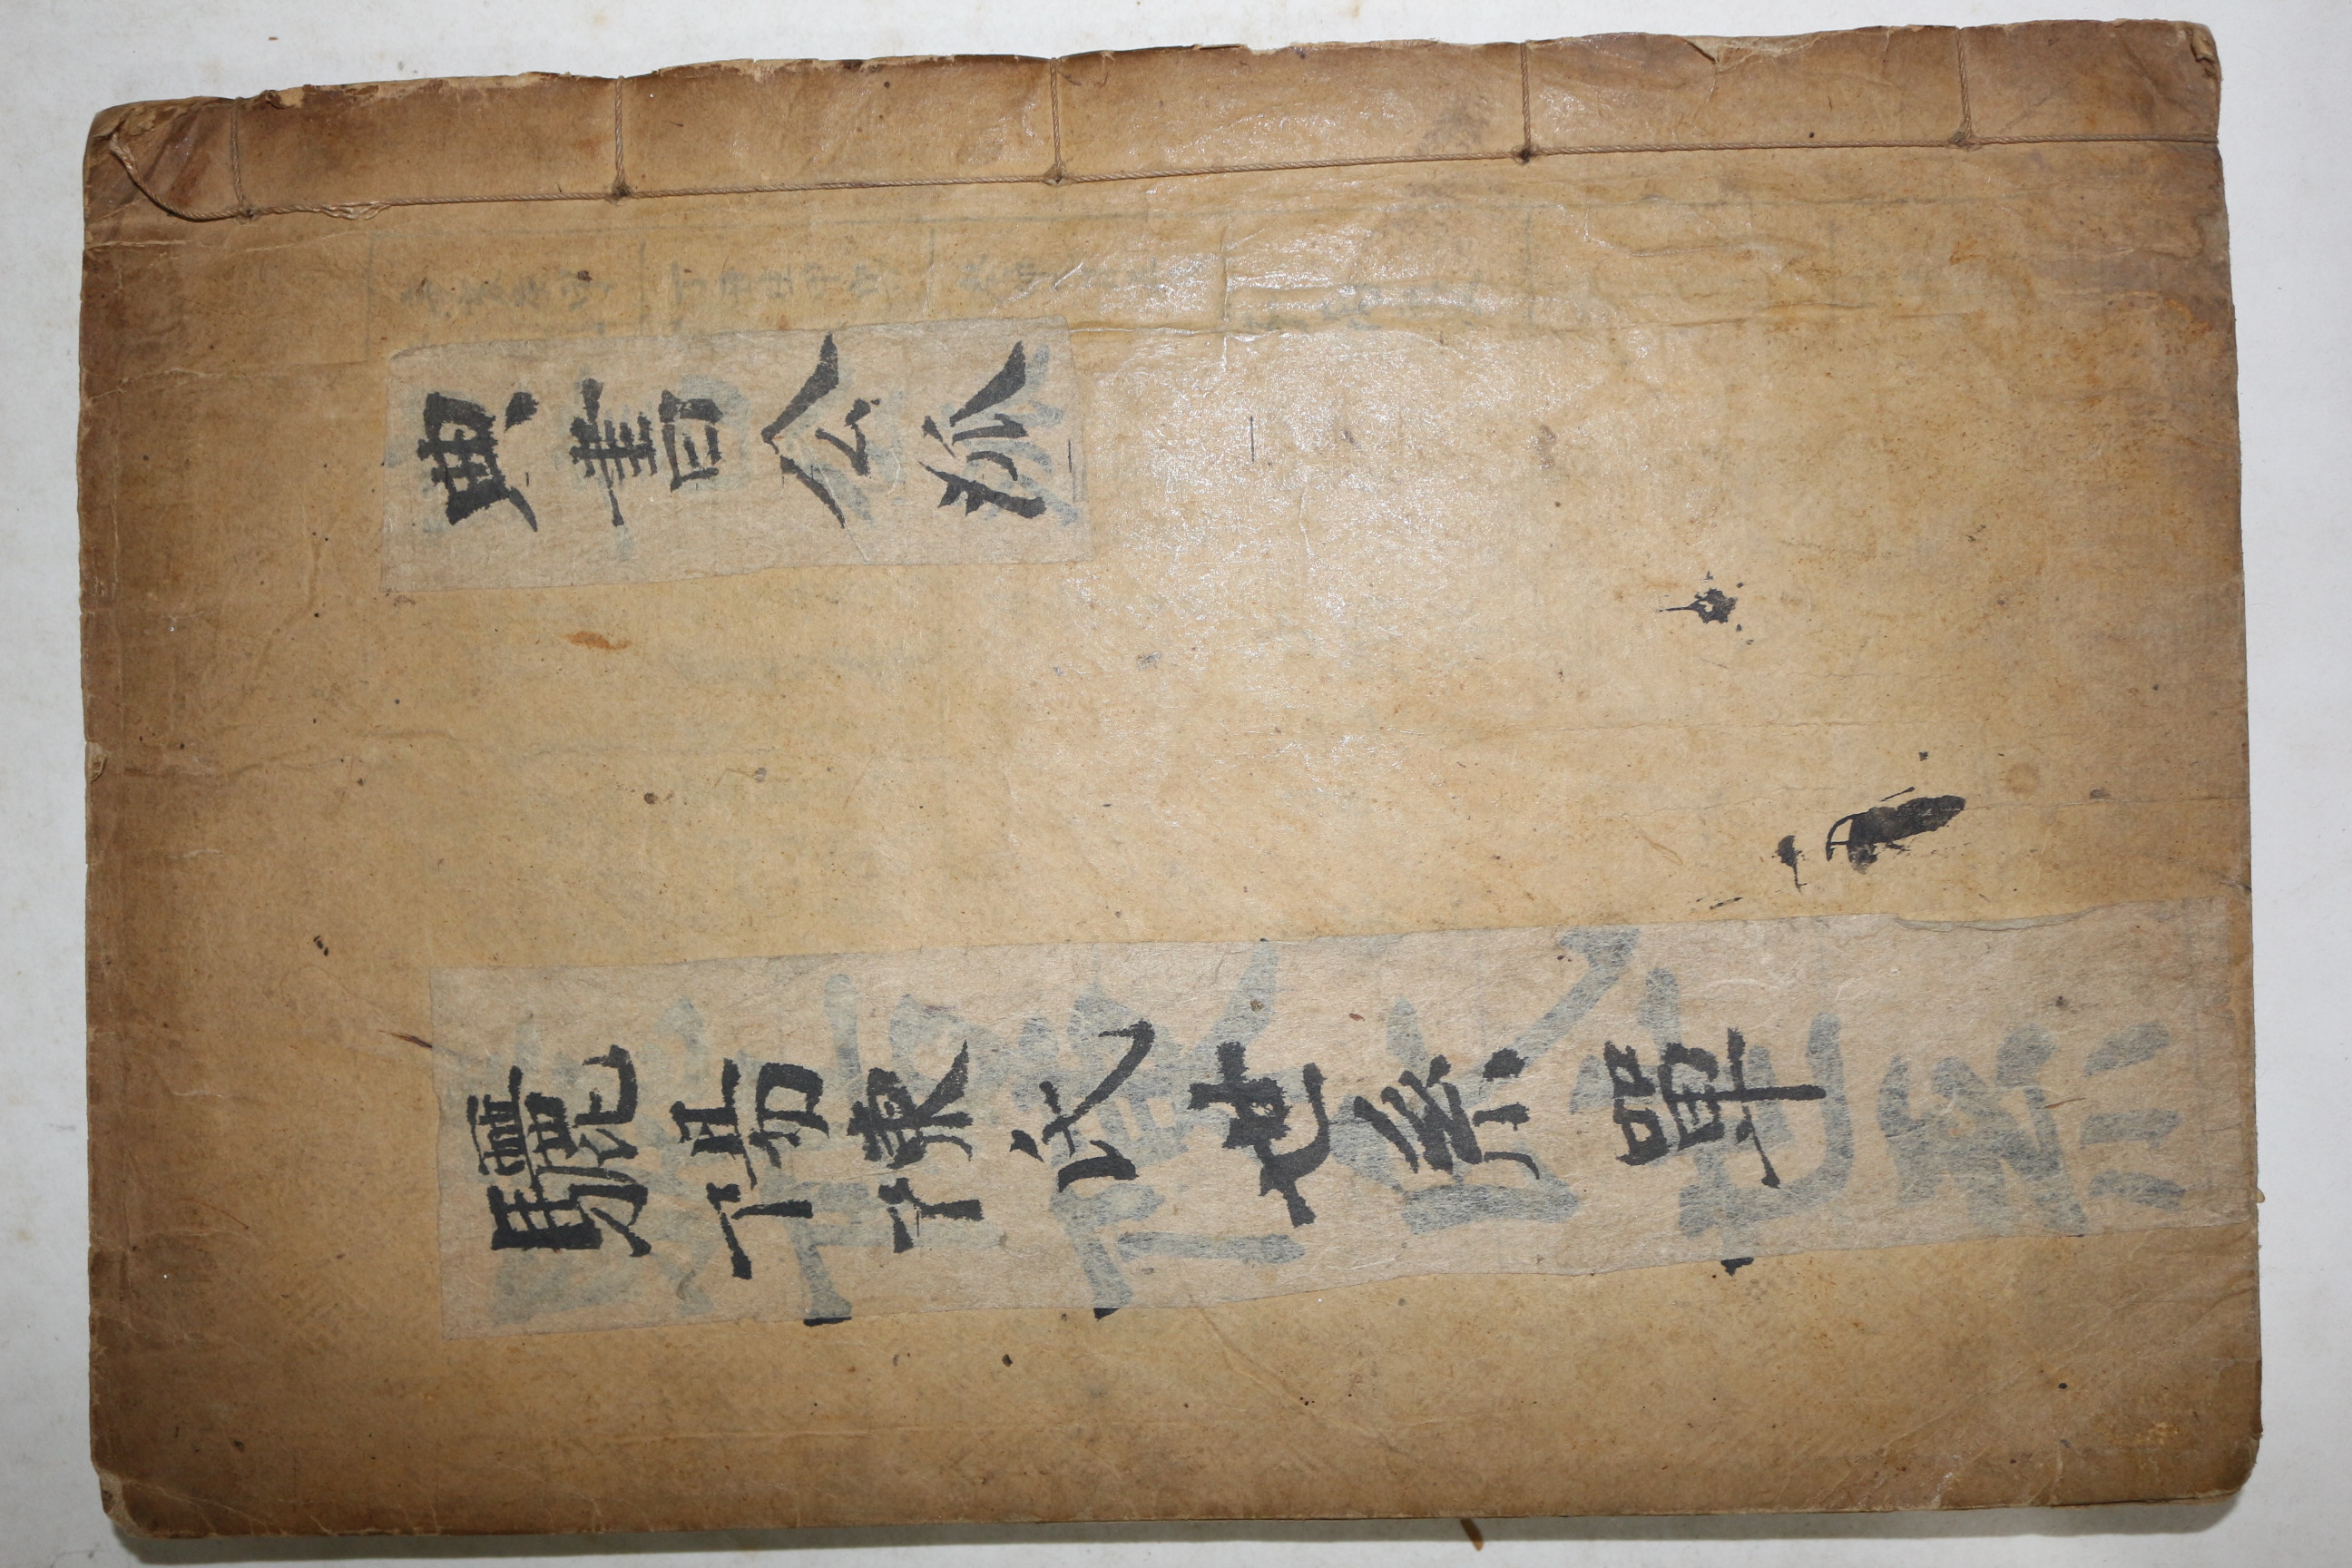 典書公派
驪陽陳氏世系單